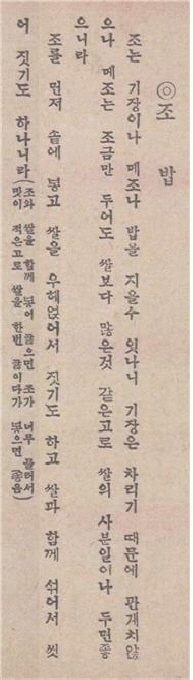 ◎조 밥
조는 기장이나 메조나 밥을 지을수 잇나니 기장은 차리기 때문에 관게치안
으나 메조는 조금만 두어도 쌀보다 만은것 같은고로 쌀의 사분일이나 두면좋
으니라
조를 먼저 솥에 넣고 쌀을 우헤얹어서 짓기도 하고 쌀과 함께 섞어서 씻
어 짓기도 하나니라(조와 쌀을 함께 넣어 끓으면 조가 너무 들어서
맛이 적은고로 쌀을 한번 끓이다가 넣으면 좋음)